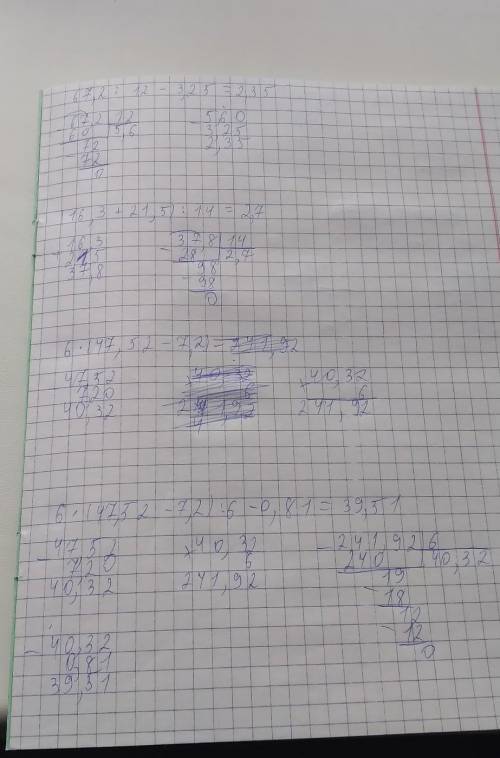 67,2 : 12 - 3,25 = 2,35
- 67,2 | 12
60 | 5,6
- 72
72
0
- 5,60
3,25
2,35
(16,3 + 21,5) : 14 = 2,7
16,3
21,5
37,8
- 37,8 | 14
28 | 2,7
- 98
98
0
6 · (47,52 - 7,2) = 241,92
47,52
7,20
40,32
× 40,32
6
241,92
6 · (47,52 - 7,2) : 6 - 0,81 = 39,51
- 47,52
7,20
40,32
× 40,32
6
241,92
- 241,92 | 6
240 | 40,32
19
- 18
12
- 12
0
- 40,32
0,81
39,51